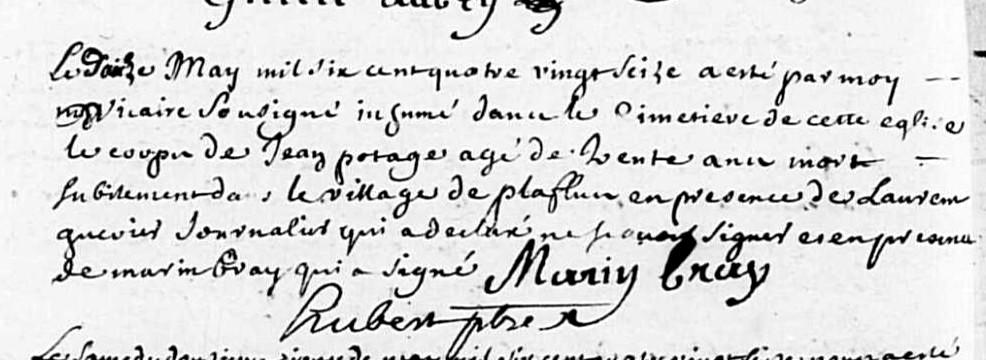 Le Douze May mil six cent quatre vingt seize a esté par moy
vicaire sousigné inhumé dans le Cimetiere de cette eglise
le corps de Jean potage agé de trente ans mort
subitement dans le village de plaflue en presence de Laurens
guerier Journalier qui a declaré ne sçavoir signer et en presence
de marin bray qui a signé Marin bray
Hubert ptre